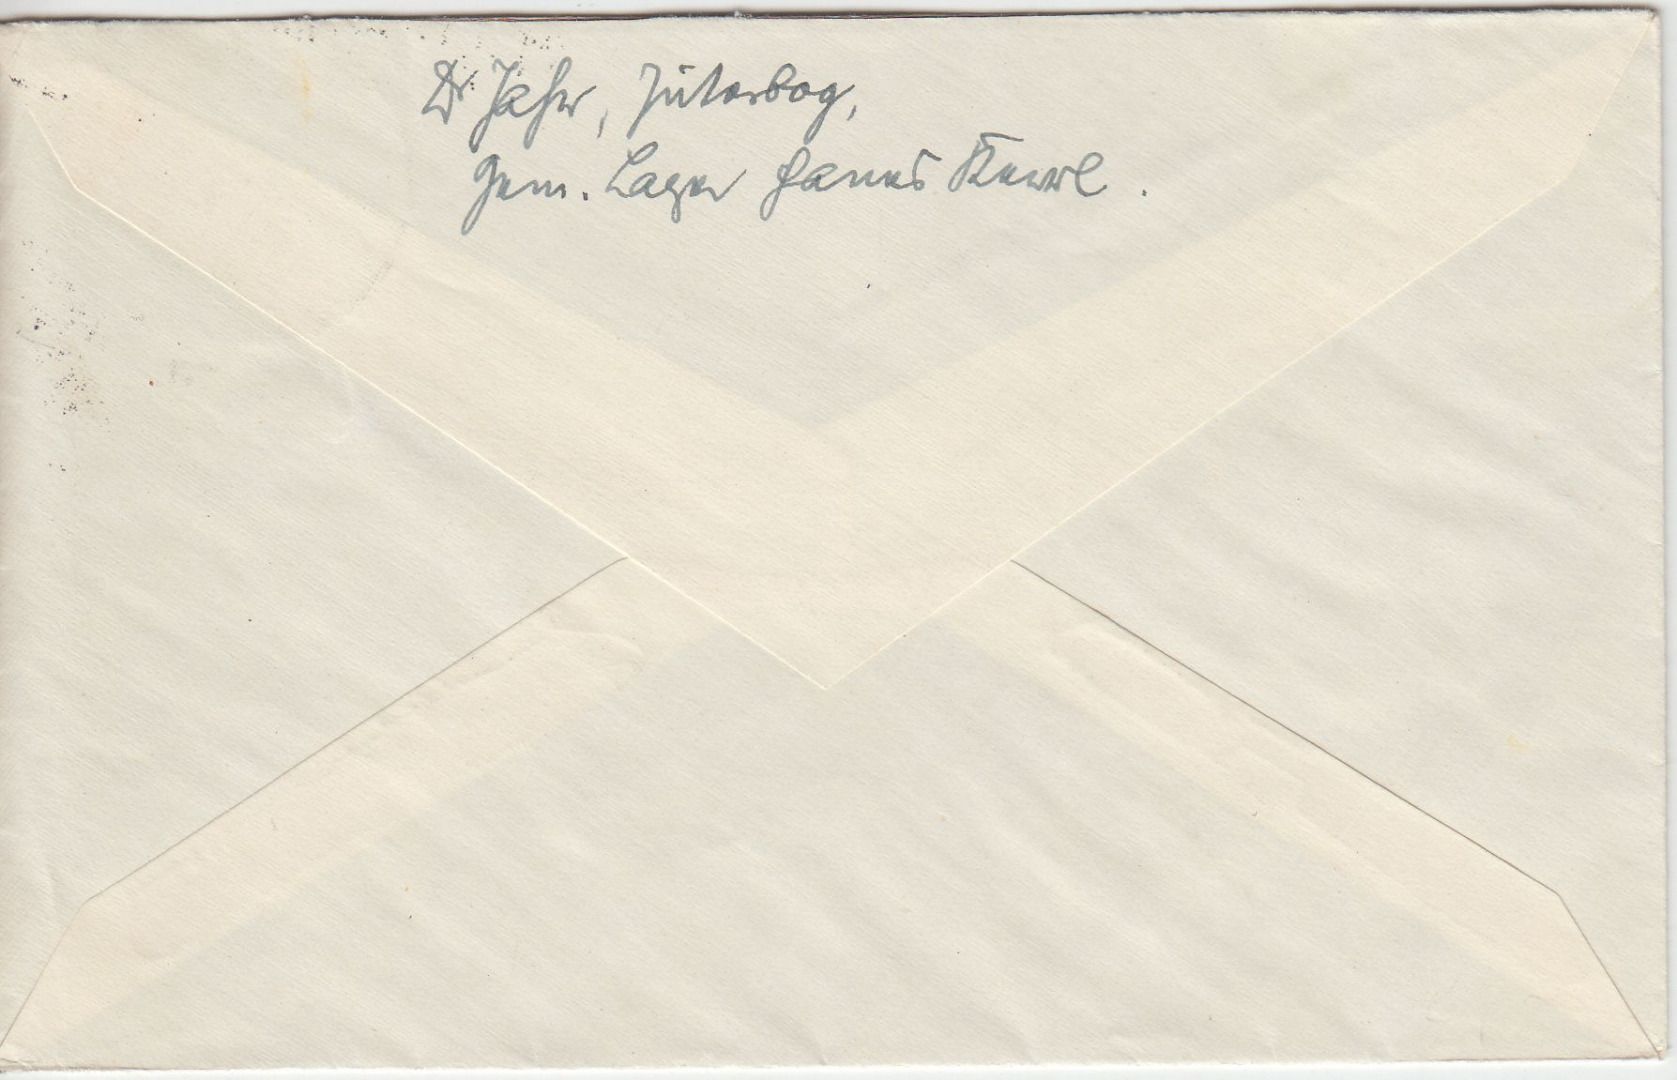 Dr Jahr, Jüterbog,
Gem. Lager Hanns Kerrl.